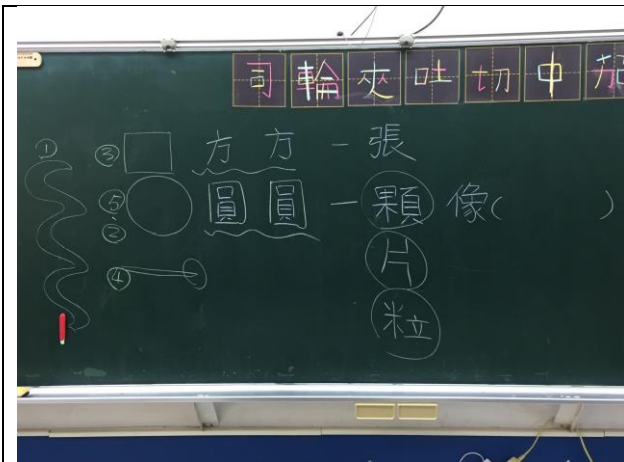 司輪夾吐切中茄
① ③ 方方一張
⑤、② 圓圓一顆像( )
④ 片
粒